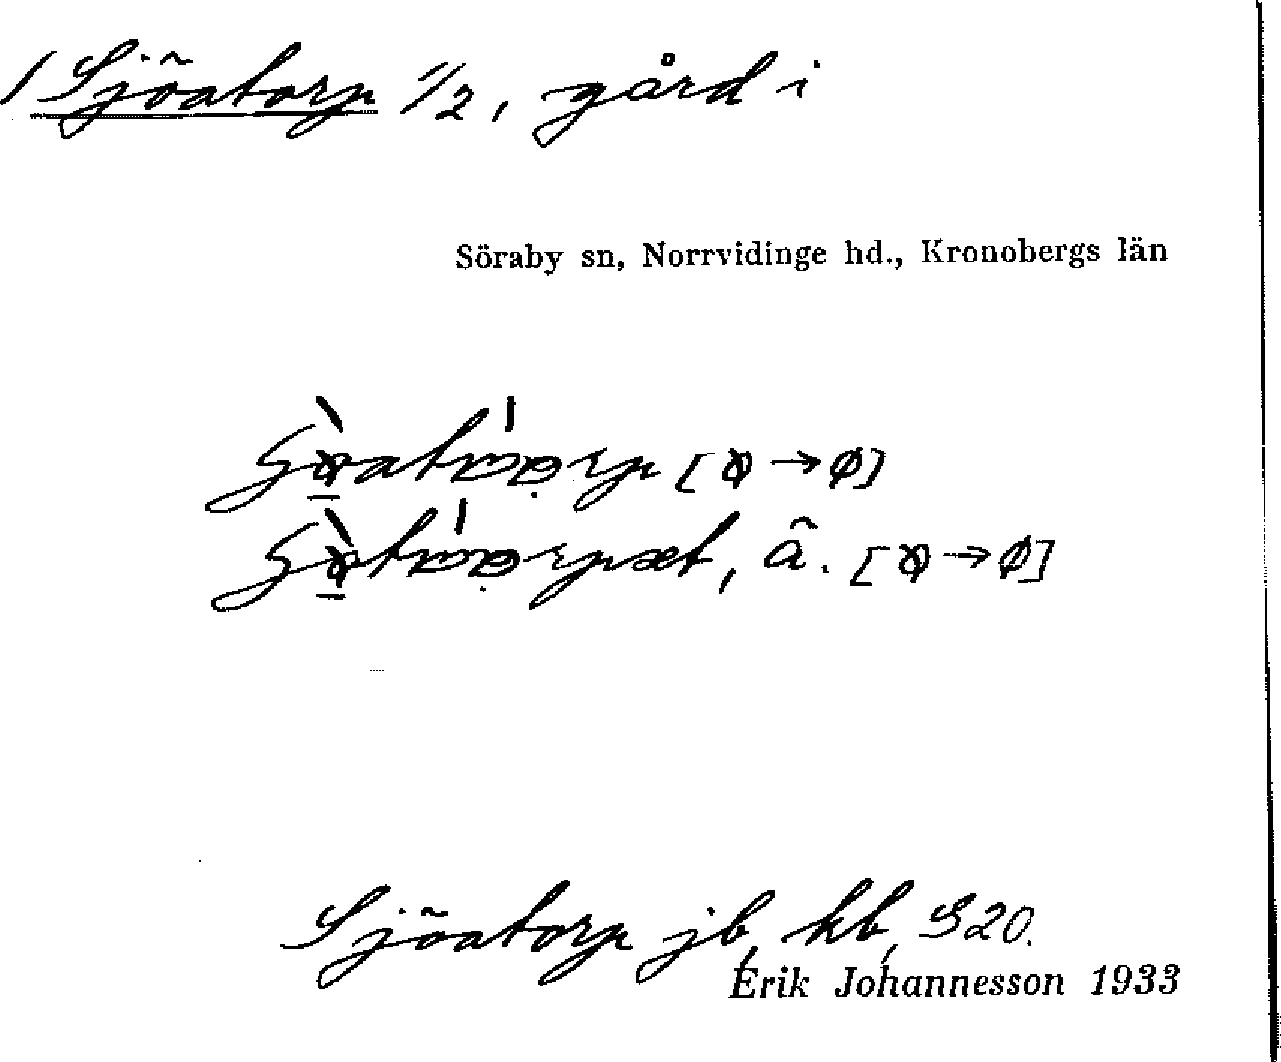 / Sjöatorp 1/2, gård i
Söraby sn, Norrvidinge hd., Kronobergs län
[ → ø]
, â. [ → ø]
Sjöatorp jb, kb, S20.
Erik Johannesson 1933